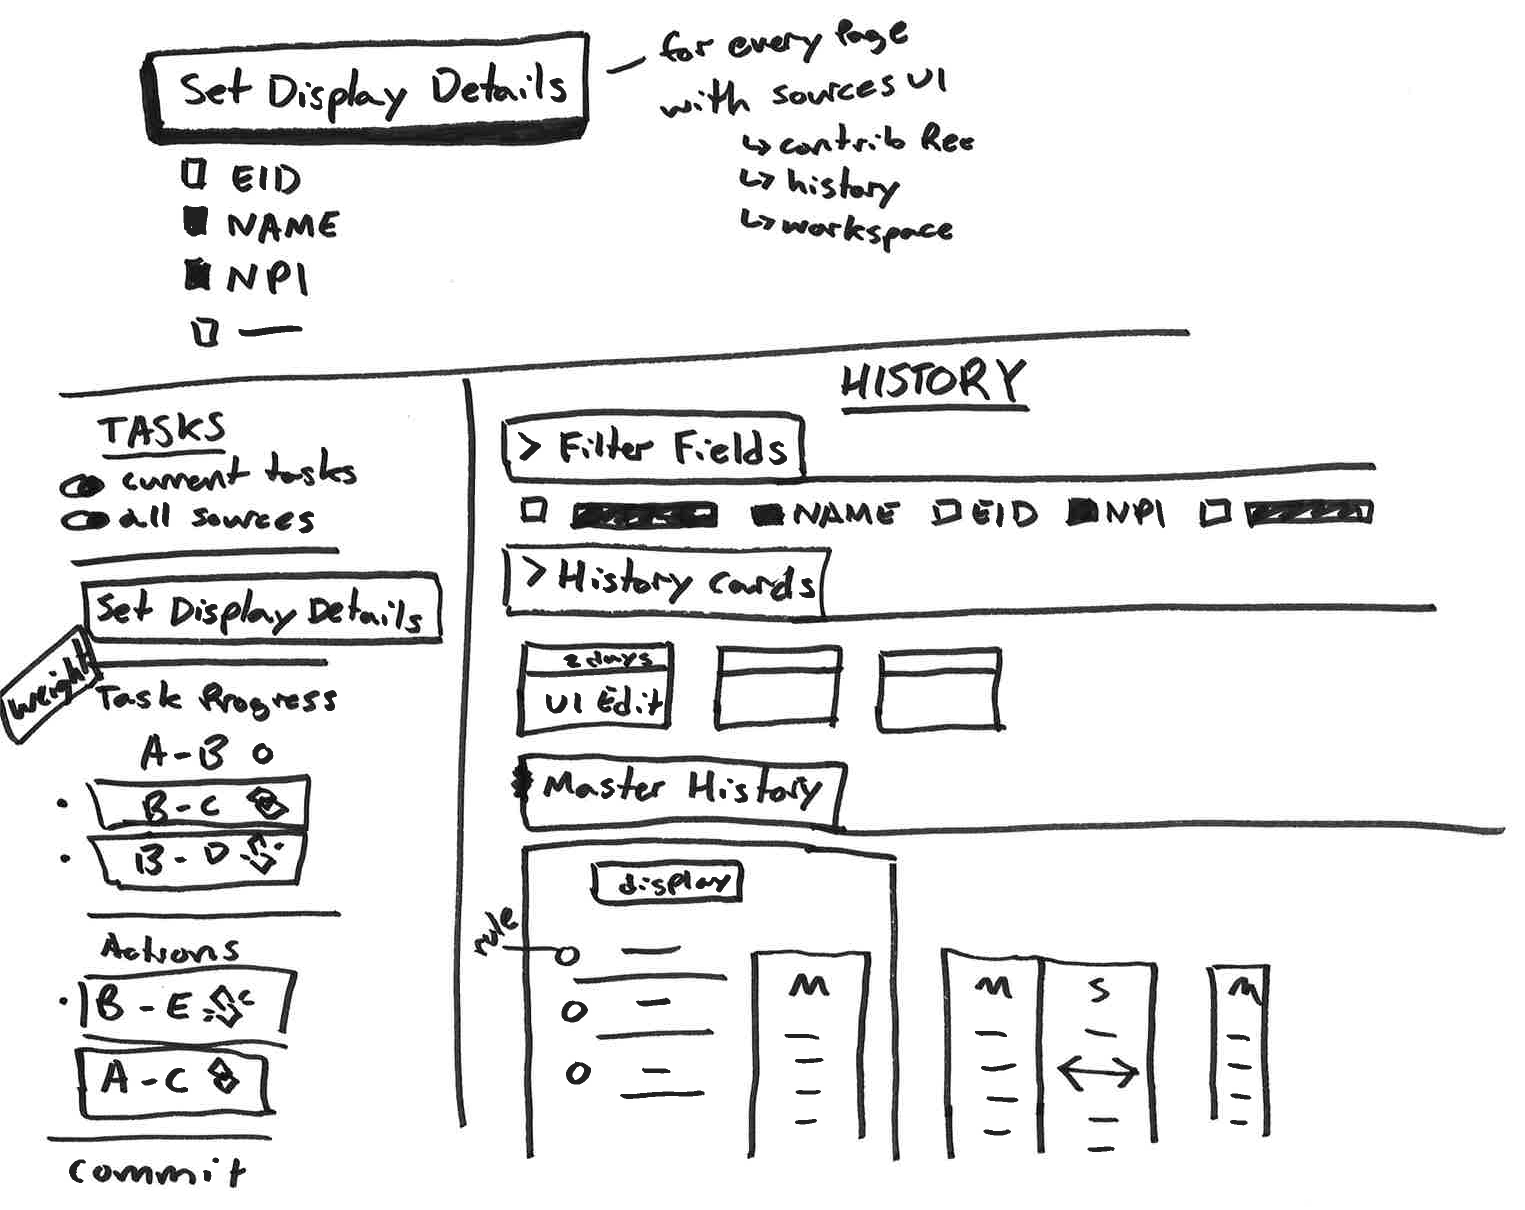 Set Display Details
for every Page
with sources UI
↳ contrib Rec
↳ history
↳ workspace
EID
NAME
NPI
TASKS
current tasks
all sources
Set Display Details
weight
Task Progress
A-B
B-C
B-D
Actions
B-E
A-C
Commit
HISTORY
> Filter Fields
NAME EID NPI
> History Cards
2 days
UI Edit
Master History
display
rule
M M S M